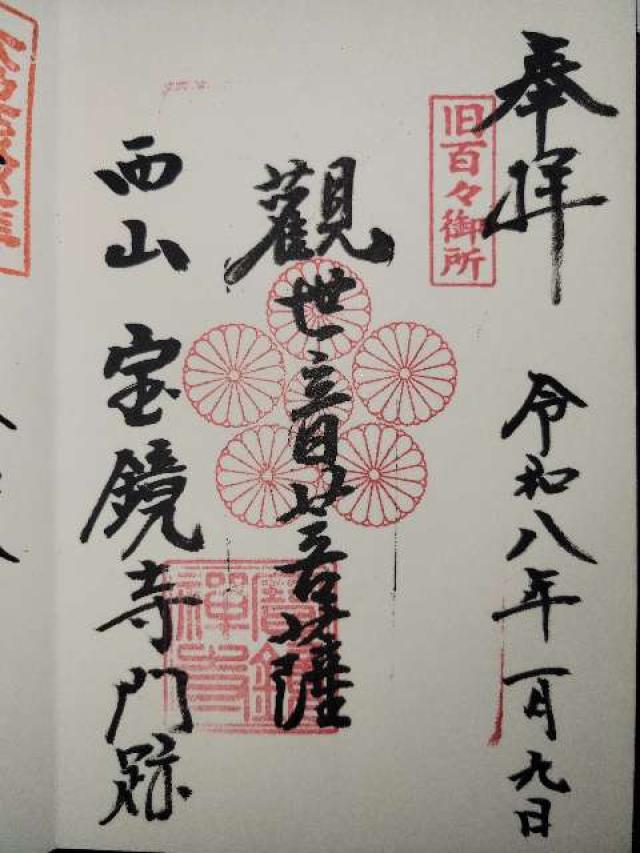 奉拝
旧百々御所
令和八年一月九日
觀世音菩薩
寶鏡禪寺
西山 宝鏡寺門跡